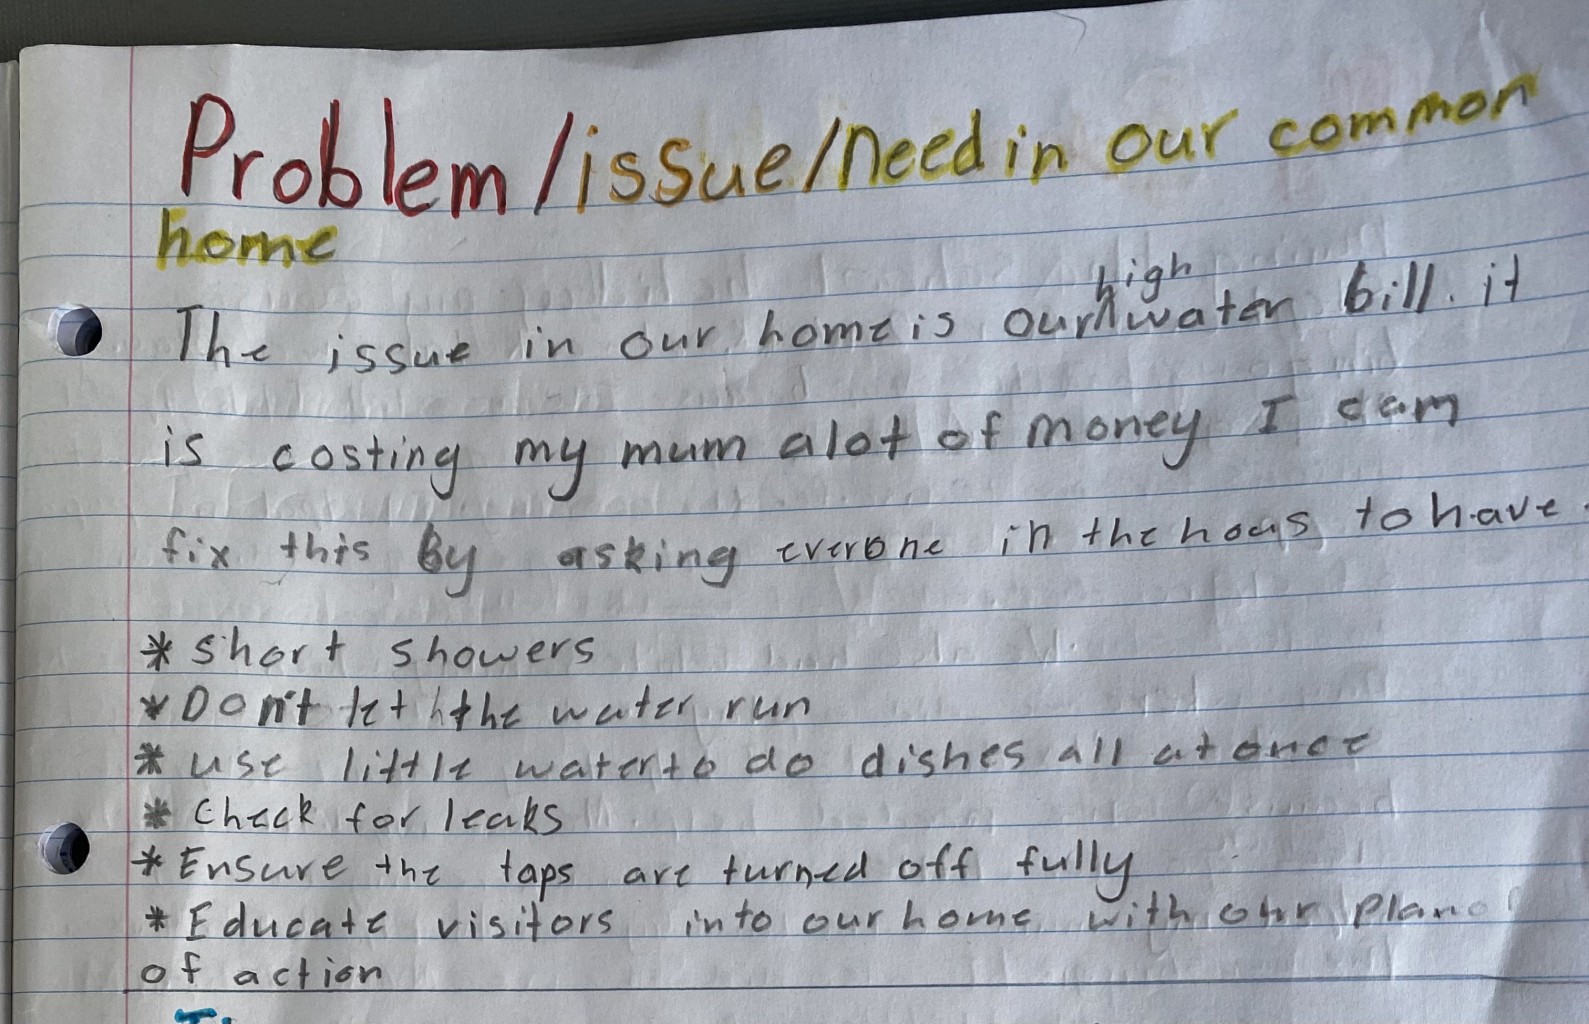 Problem/issue/need in our common
home
The issue in our home is our high water bill. it
is costing my mum alot of money I cam
fix this By asking everone in the hous to have
* short showers
* Don't let the water run
* use little water to do dishes all at once
* Check for leaks
* Ensure the taps are turned off fully
* Educate visitors into our home with our plan
of action